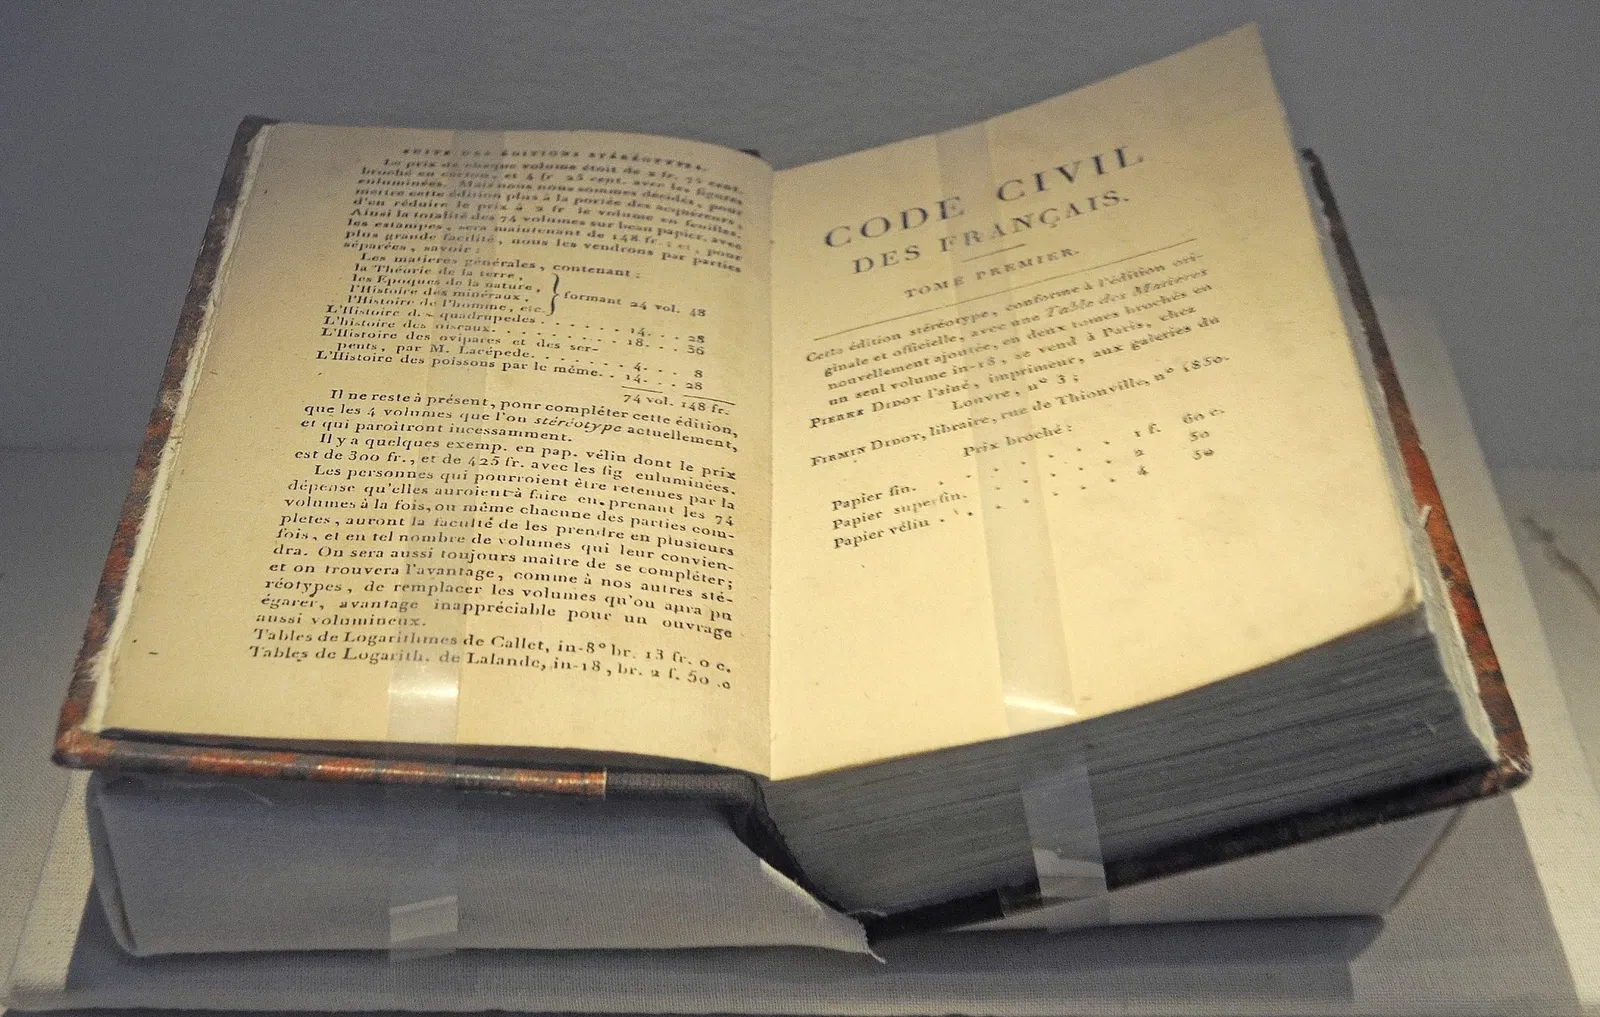 SUITE DES ÉDITIONS STÉRÉOTYPES.
Le prix de chaque volume étoit de 2 fr. 75 cent.
broché en carton, et 4 fr 25 cent. avec les figures
enluminées. Mais nous nous sommes décidés, pour
mettre cette édition plus à la portée des acquéreurs,
d'en réduire le prix à 2 fr le volume en feuilles.
Ainsi la totalité des 74 volumes sur beau papier, avec
les estampes, sera maintenant de 148 fr.; et, pour
plus grande facilité, nous les vendrons par parties
séparées, savoir:
Les matieres générales, contenant:
la Théorie de la terre,
les Epoques de la nature,
l'Histoire des minéraux,
l'Histoire de l'homme, etc. } formant 24 vol. 48
L'Histoire des quadrupedes . . . . . . 14. . . 28
L'histoire des oiseaux. . . . . . . 18. . . 36
L'Histoire des ovipares et des ser-
pents, par M. Lacépede. . . . . . 4. . . 8
L'Histoire des poissons par le même. . 14. . . 28
74 vol. 148 fr.
Il ne reste à présent, pour compléter cette édition,
que les 4 volumes que l'on stéréotype actuellement,
et qui paroîtront incessamment.
Il y a quelques exemp. en pap. vélin dont le prix
est de 300 fr., et de 425 fr. avec les fig enluminées.
Les personnes qui pourroient être retenues par la
dépense qu'elles auroient à faire en prenant les 74
volumes à la fois, ou même chacune des parties com-
pletes, auront la faculté de les prendre en plusieurs
fois, et en tel nombre de volumes qui leur convien-
dra. On sera aussi toujours maitre de se compléter;
et on trouvera l'avantage, comme à nos autres sté-
réotypes, de remplacer les volumes qu'on aura pu
égarer, avantage inappréciable pour un ouvrage
aussi volumineux.
Tables de Logarithmes de Callet, in-8° br. 13 fr. 0 c.
Tables de Logarith. de Lalande, in-18, br. 2 f. 50 c
CODE CIVIL
DES FRANÇAIS.
TOME PREMIER.
Cette édition stéréotype, conforme à l'édition ori-
ginale et officielle, avec une Table des Matieres
nouvellement ajoutée, en deux tomes brochés en
un seul volume in-18, se vend à Paris, chez
PIERRE DIDOT l'aîné, imprimeur, aux galeries du
Louvre, n° 3;
FIRMIN DIDOT, libraire, rue de Thionville, n° 1850.
Prix broché:
Papier fin. . . . . . . 1 f. 60 c.
Papier superfin. . . . . . 2 50
Papier vélin . . . . . . . 4 50